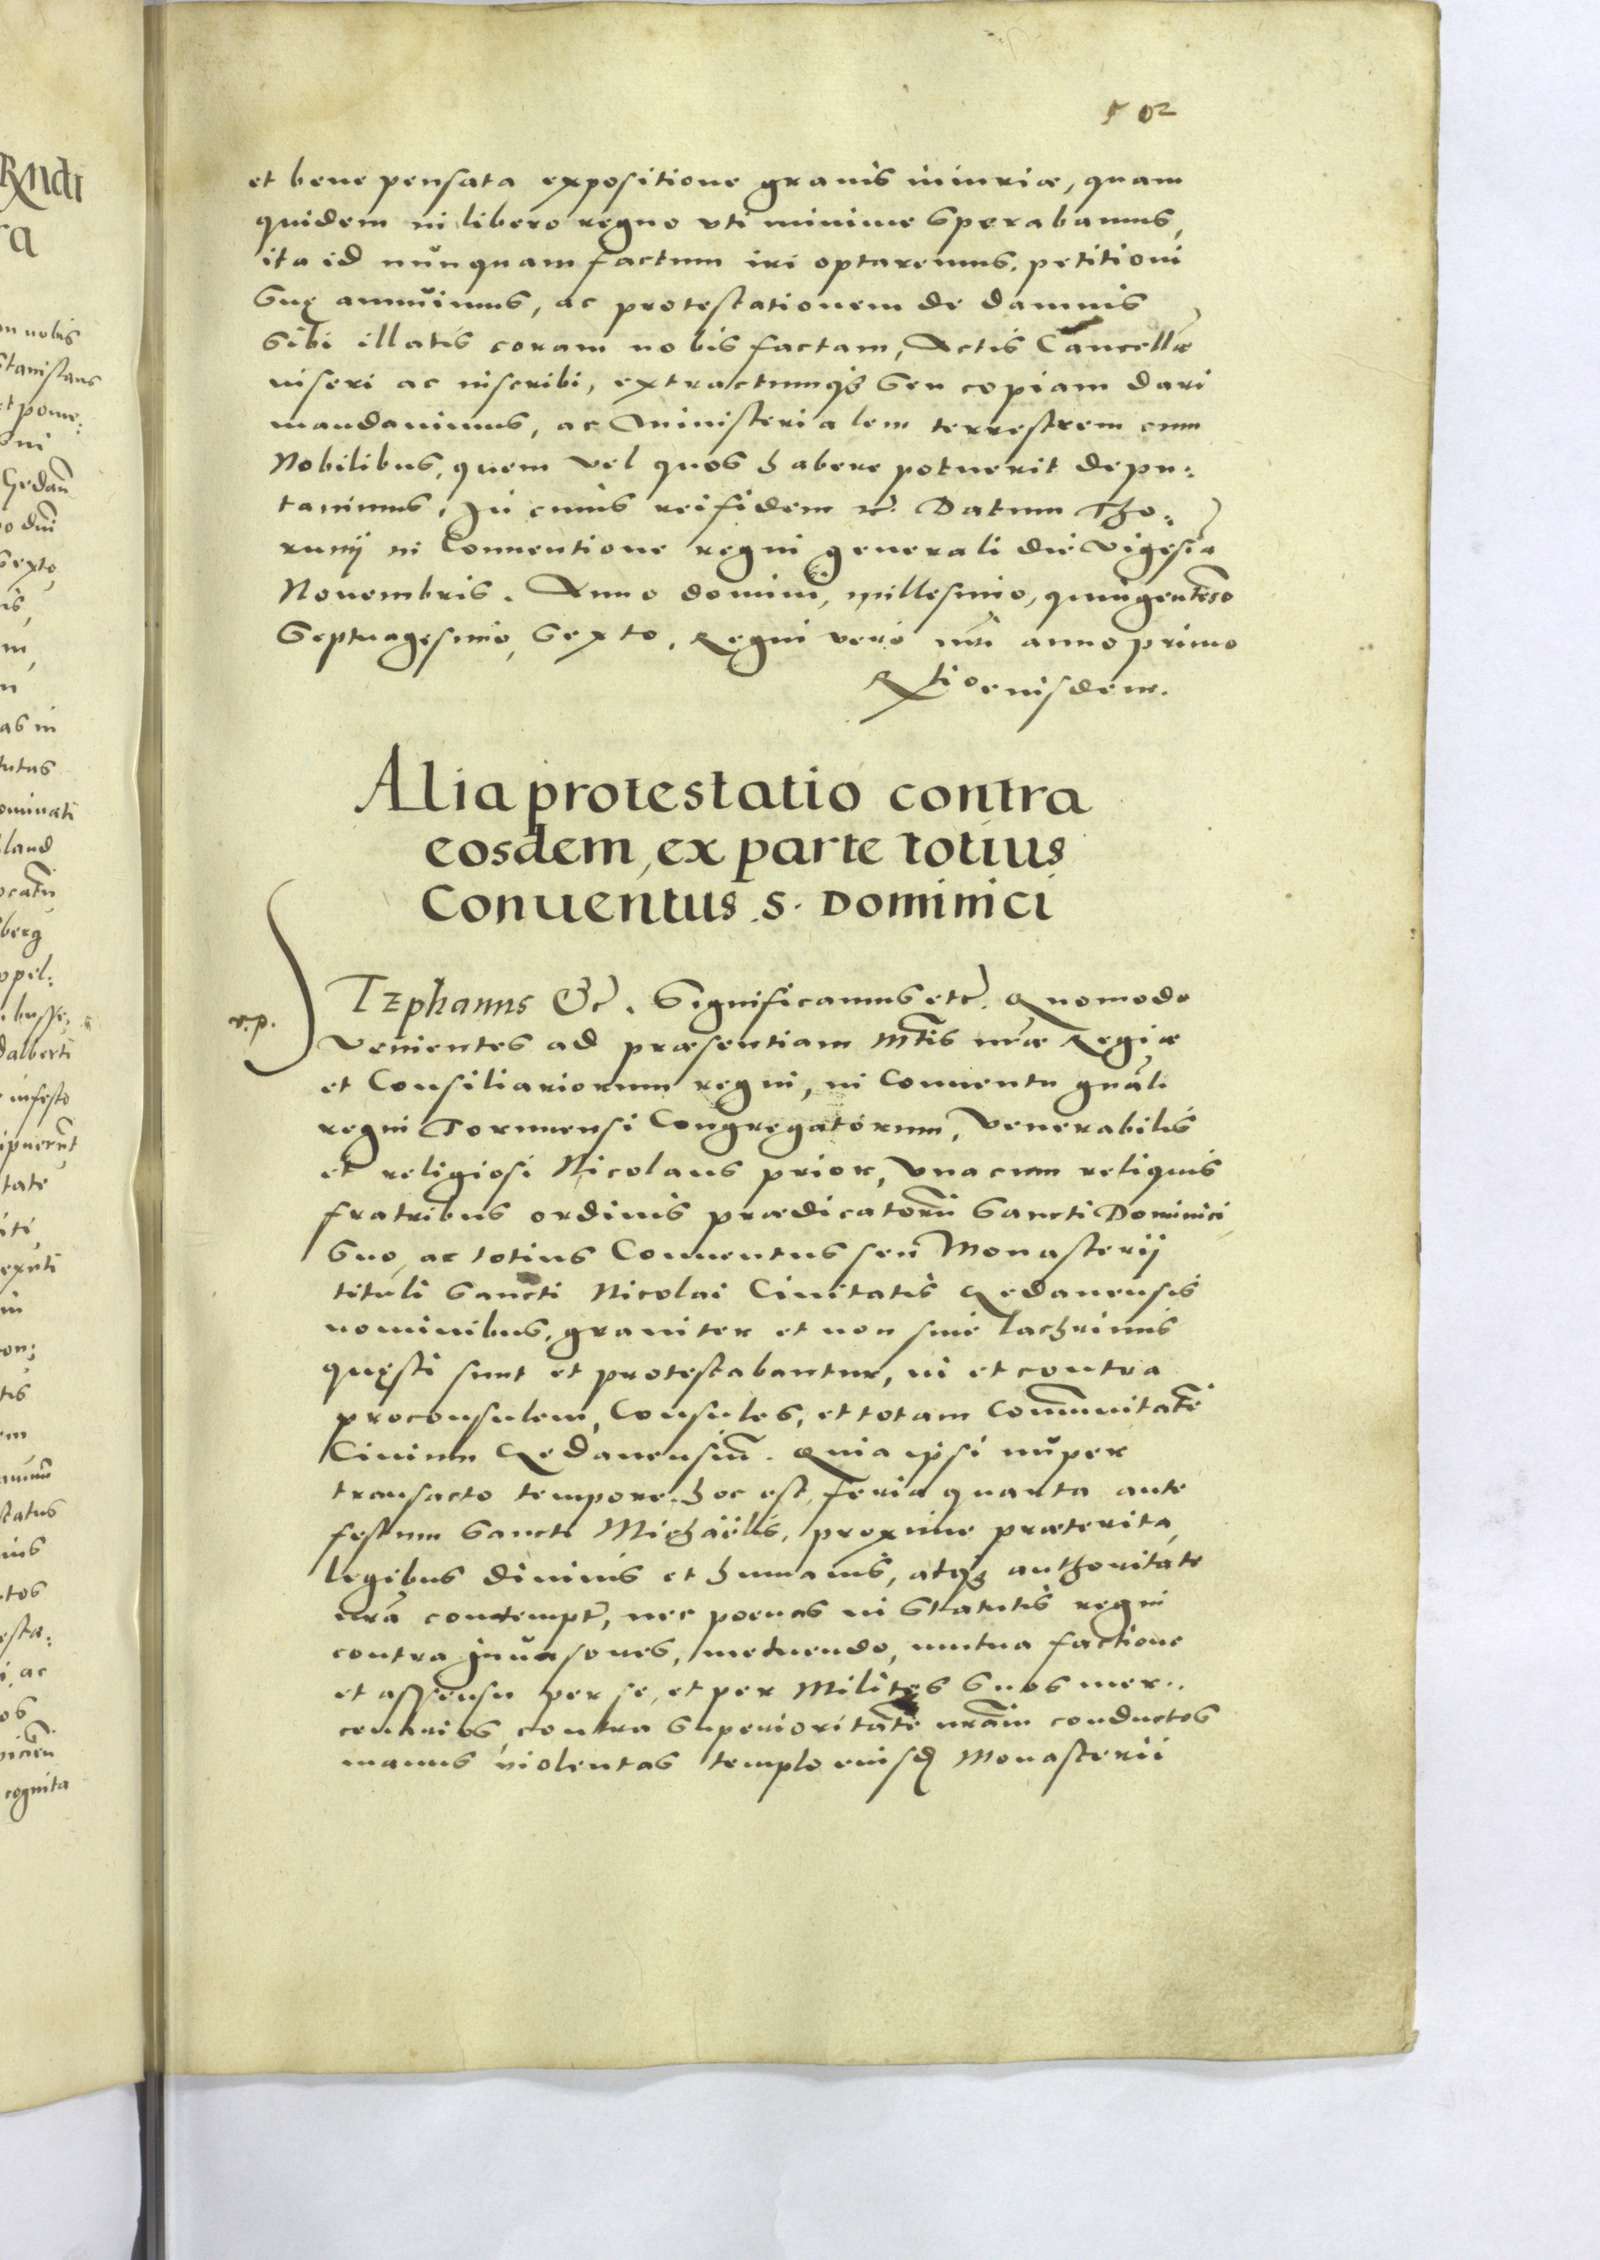 502
et bene pensata expositione grauis iniuriæ, quam
quidem in libero regno vti minime sperabamus,
ita id nŭnquam factum iri optaremus. petitioni
suę annuimus, ac protestationem de damnis
sibi illatis coram nobis factam, Actis Cancellæ
inseri ac inscribi, extractumq₃ seu copiam dari
mandauimus, ac Ministerialem terrestrem cum
Nobilibus, quem vel quos habere potuerit depu:
tauimus, In cuius rei fidem etc. Datum Tho:
runij in Conuentione regni generali die vigesia
Nouembris. Anno domini, millesimo, quingenteso
Septuagesimo, sexto, Regni vero nri anno primo
Rtio eiusdem.
Alia protestatio contra
eosdem, ex parte totius
Conuentus S. Dominici
r. p.
STEphanus &c. Significamus etc. Quomodo
Venientes ad præsentiam Mtis nræ Regiæ
et Consiliariorum regni, in Conuentu gnāli
regni Torunensi Congregatorum, Venerabilis
et religiosi Nicolaus prior, vna cum reliquis
fratribus ordinis prædicatorū Sancti Dominici,
suo, ac totius Conuentus seu Monasterij
tituli Sancti Nicolai Ciuitatis Gedanensis
nominibus, grauiter et non sine lachrimis
quęsti sunt et protestabantur, in et contra
proconsulem, Consules, et totam Com̄unitatē
Ciuium Gedanensiū. Quia ipsi nŭper
transacto tempore, hoc est, feria quarta ante
festum Sancti Michaëlis, proxime præterita,
legibus diuinis et humanis, atq₃ authoritate
nrā contempt, nec poenas in Statutis regni
contra Inŭasores, metuendo, mutua factione
et assensu per se, et per Milites suos mer:
cenarios, contra superioritatē nrām conductos
manus violentas templo eiusd Monasterii